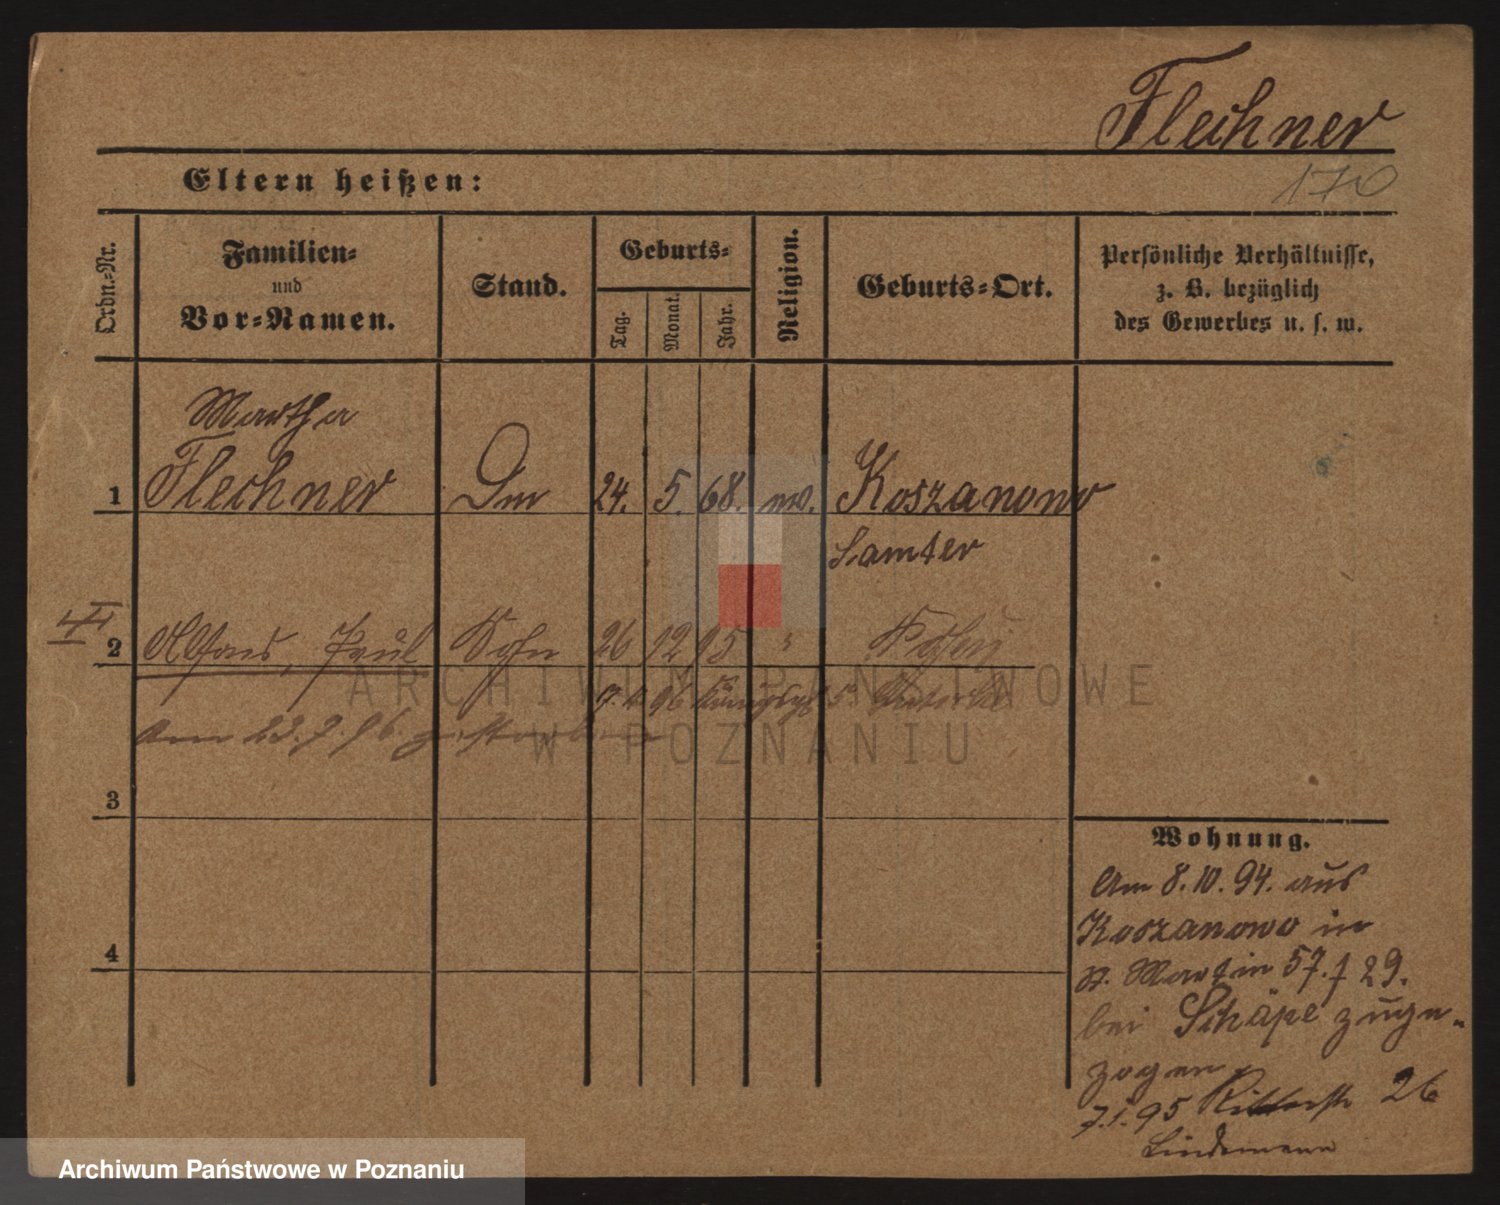 Flechner
170
Eltern heißen:
Ordn.-Nr.
Familien-
und
Vor-Namen.
Stand.
Geburts-
Tag.
Monat.
Jahr.
Religion.
Geburts-Ort.
Persönliche Verhältnisse,
z. B. bezüglich
des Gewerbes u. s. w.
Martha
1 Flechner 24. 5. 68. Koszanowo
Samter
2 Paul Sohn 26 12 95 "
7. 96 Königspl 5
Am 23. 7. 96. gestorben
3
4
Wohnung.
Am 8.10.94. aus
Koszanowo in
St. Martin 57. f 29.
bei Schäpe zuge-
zogen
7.1.95 Ritterstr 26
Lindemann
ARCHIWUM PAŃSTWOWE
W POZNANIU
Archiwum Państwowe w Poznaniu